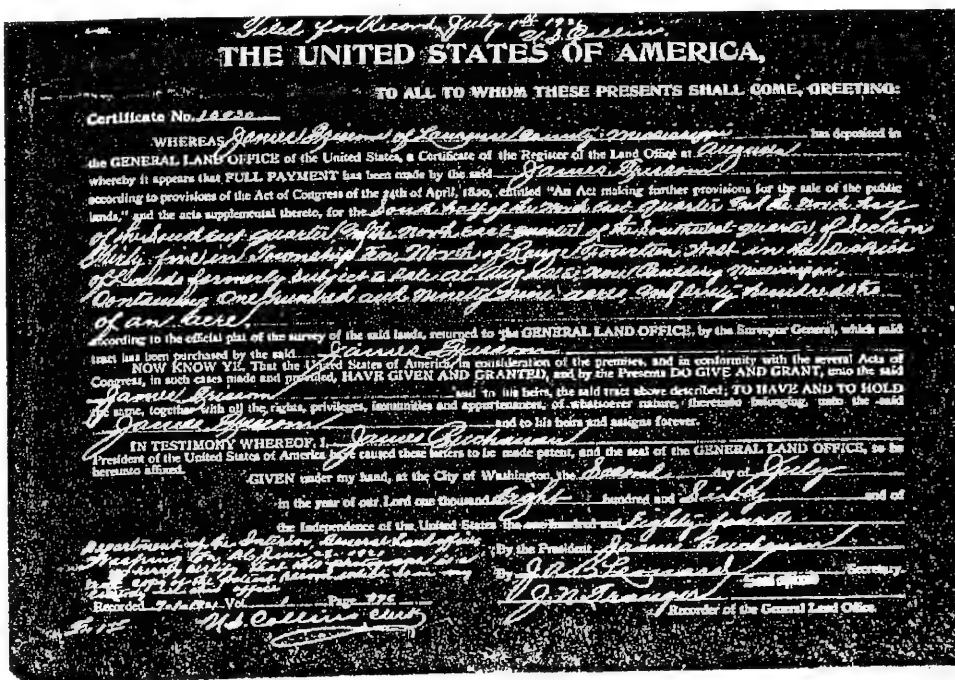 Filed for Record July 1st 1926
U.S. Collins.
THE UNITED STATES OF AMERICA,
TO ALL TO WHOM THESE PRESENTS SHALL COME, GREETING:
Certificate No.
WHEREAS James Grissom of Lawrence County, Mississippi has deposited in
the GENERAL LAND OFFICE of the United States, a Certificate of the Register of the Land Office at Augusta
whereby it appears that FULL PAYMENT has been made by the said James Grissom
according to provisions of the Act of Congress of the 24th of April, 1820, entitled "An Act making further provisions for the sale of the public
lands," and the acts supplemental thereto, for the South half of the North East quarter and the North half
of the South east quarter and the North East quarter of the Southwest quarter of Section
Thirty in Township Ten North of Range Fourteen West in the District
of Lands formerly subject to Sale at Augusta now Mississippi,
Containing One hundred and ninety nine acres, and sixty hundredths
of an Acre,
according to the official plat of the survey of the said lands, returned to the GENERAL LAND OFFICE, by the Surveyor General, which said
tract has been purchased by the said James Grissom
NOW KNOW YE, That the United States of America, in consideration of the premises, and in conformity with the several Acts of
Congress, in such cases made and provided, HAVE GIVEN AND GRANTED, and by the Presents DO GIVE AND GRANT, unto the said
James Grissom and to his heirs, the said tract above described; TO HAVE AND TO HOLD
the same, together with all the rights, privileges, immunities and appurtenances, of whatsoever nature, thereunto belonging, unto the said
James Grissom and to his heirs and assigns forever.
IN TESTIMONY WHEREOF, I, James Buchanan
President of the United States of America have caused these letters to be made patent, and the seal of the GENERAL LAND OFFICE, to be
hereunto affixed.
GIVEN under my hand, at the City of Washington, the Second day of July
in the year of our Lord one thousand Eight hundred and Sixty and of
the Independence of the United States the one hundred and Eighty fourth
Department of the Interior, General Land office
By the President James Buchanan
Washington June 1926
I hereby certify that this photograph is a
true copy of the patent record in my
custody in this office
By J.A.B. Leonard Secretary.
J.N. Granger
Recorded Vol. Page
Recorder of the General Land Office.
U.S. Collins Clerk